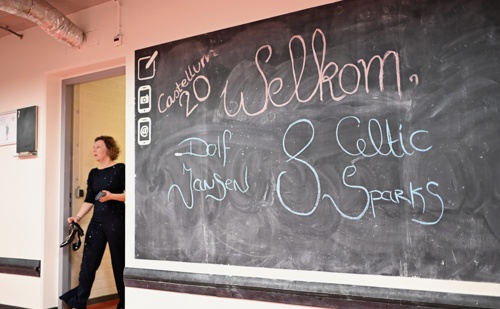 Castellum
20
Welkom,
Dolf
Jansen
&
Celtic
Sparks